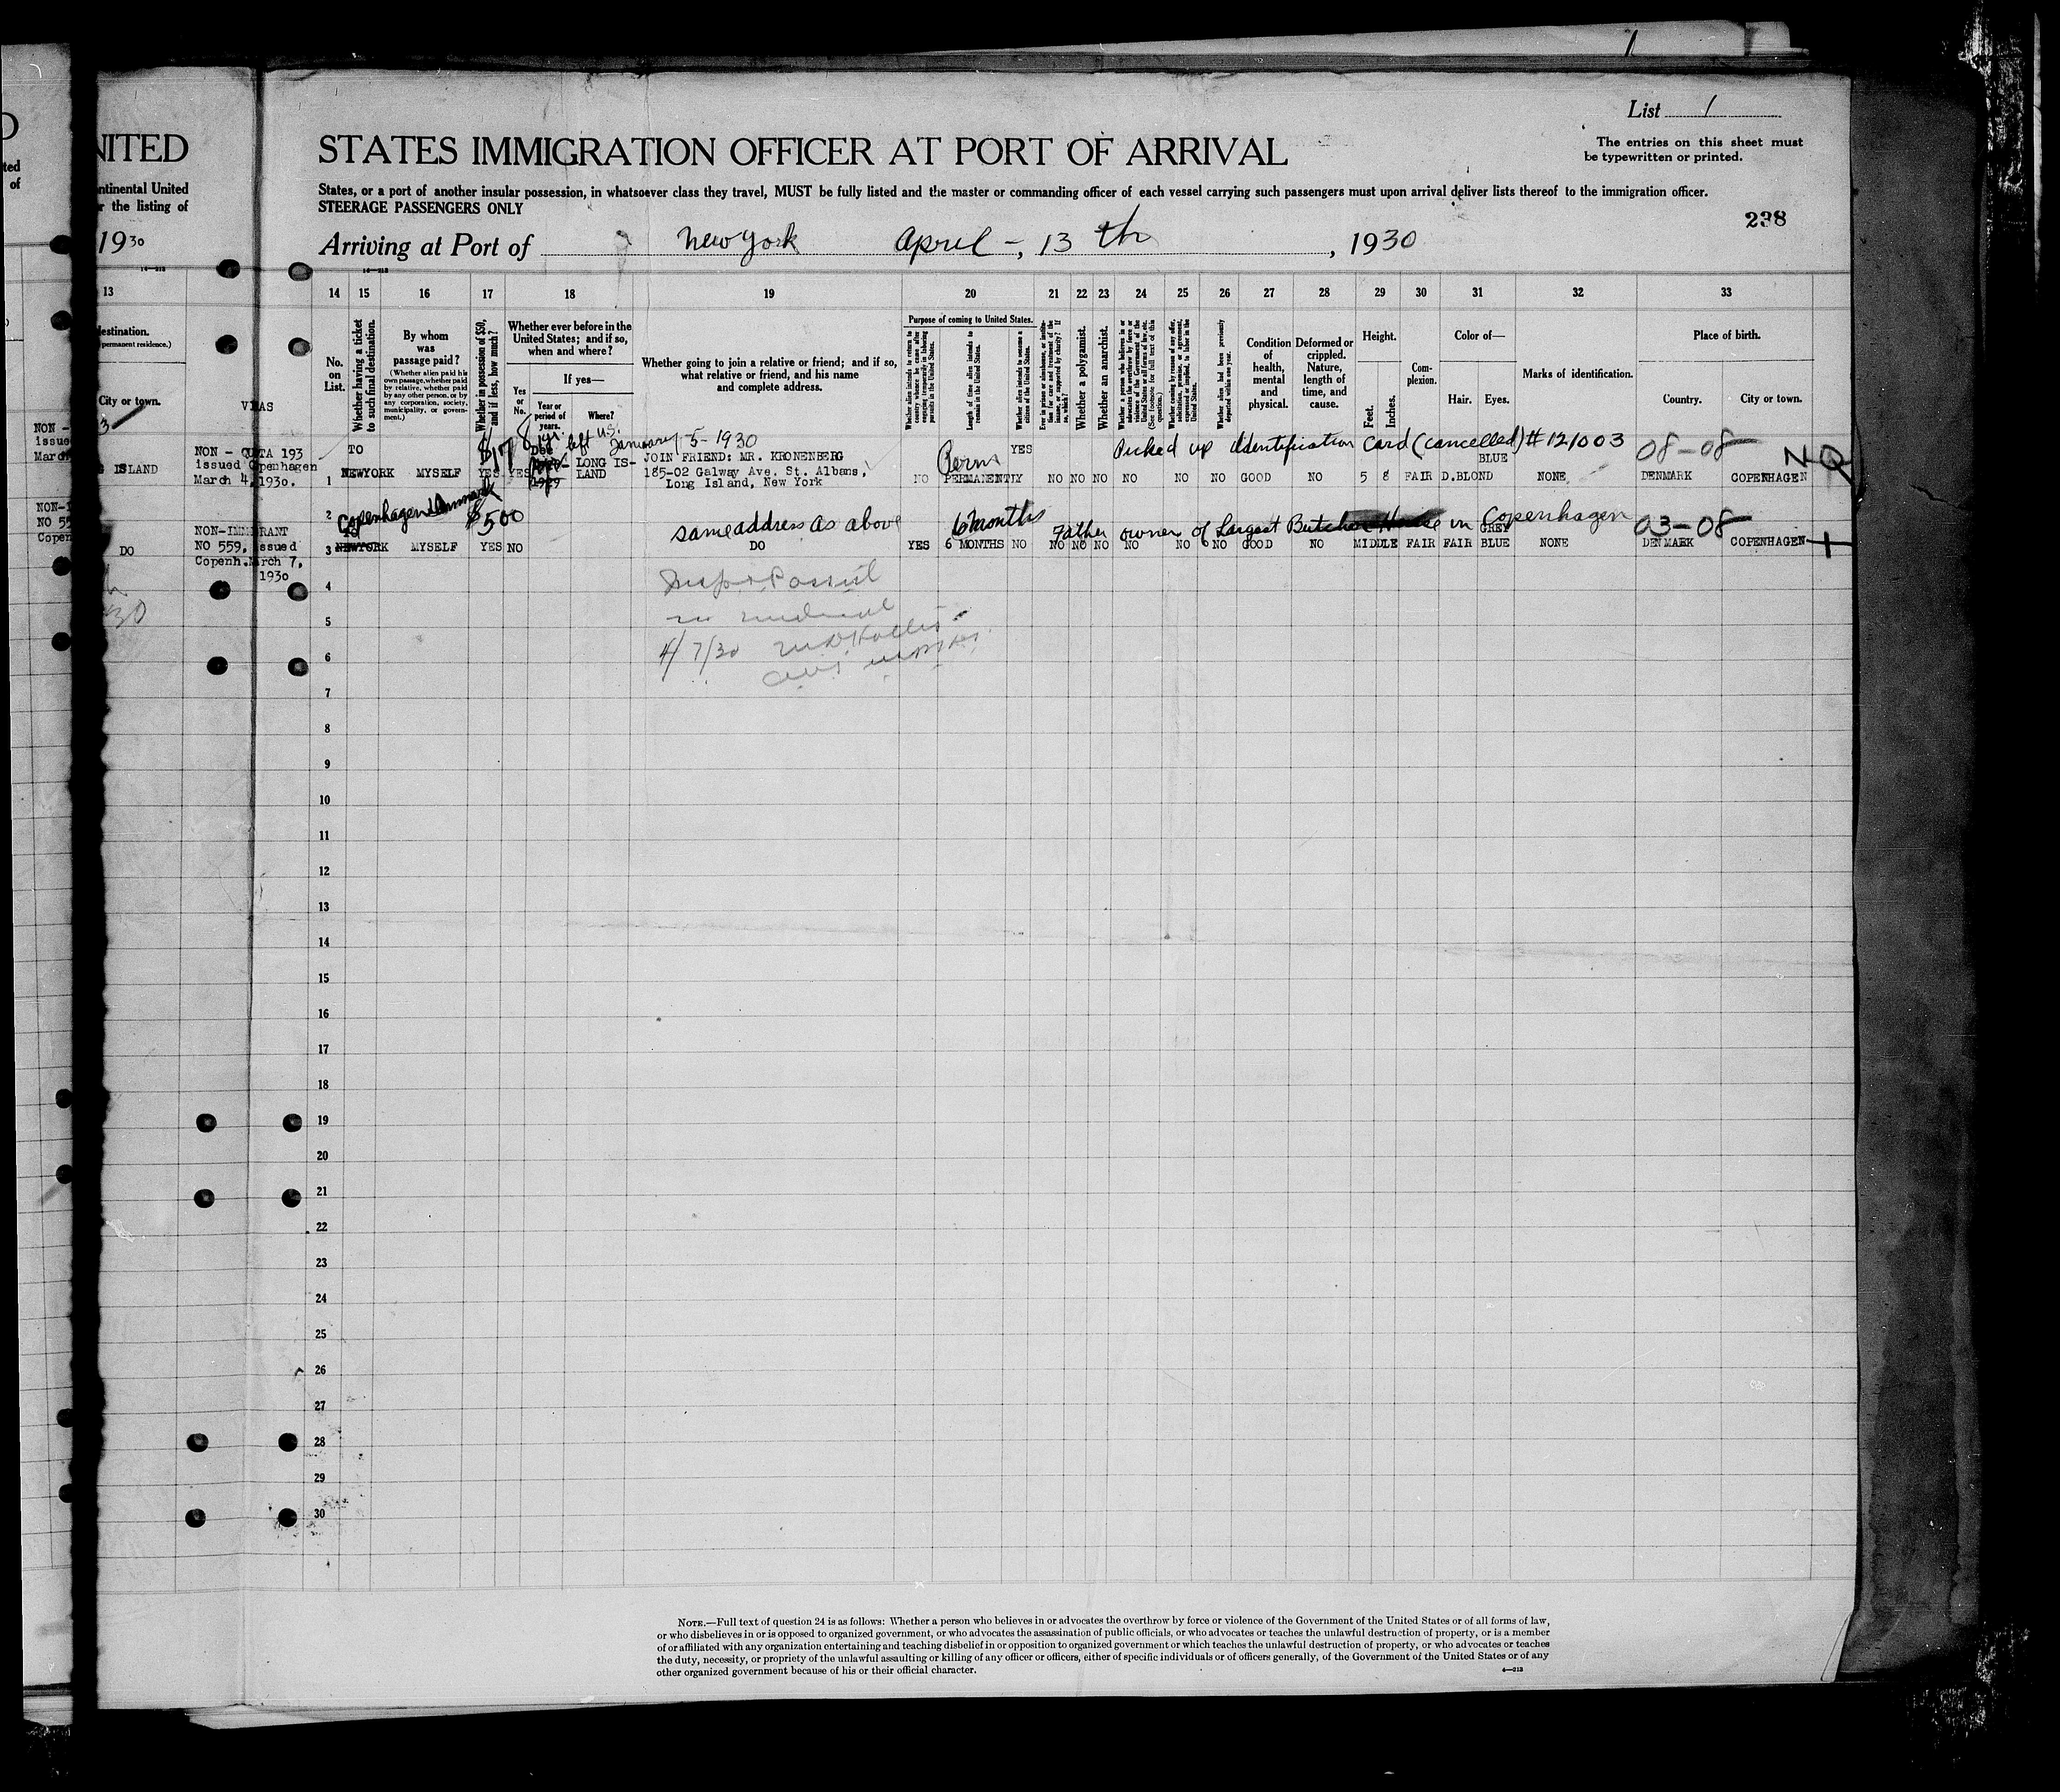 1
List 1
The entries on this sheet must
be typewritten or printed.
NITED
STATES IMMIGRATION OFFICER AT PORT OF ARRIVAL
ted
of
ntinental United
r the listing of
States, or a port of another insular possession, in whatsoever class they travel, MUST be fully listed and the master or commanding officer of each vessel carrying such passengers must upon arrival deliver lists thereof to the immigration officer.
STEERAGE PASSENGERS ONLY
238
1930
Arriving at Port of New York April -, 13 th, 1930
13 14 15 16 17 18 19 20 21 22 23 24 25 26 27 28 29 30 31 32 33
estination.
permanent residence.)
City or town.
VISAS
No. on List.
Whether having a ticket to such final destination.
By whom was passage paid?
(Whether alien paid his own passage, whether paid by relative, whether paid by any other person, or by any corporation, society, municipality, or government.)
Whether in possession of $50, and if less, how much?
Whether ever before in the United States; and if so, when and where?
Yes or No.
If yes—
Year or period of years.
Where?
Whether going to join a relative or friend; and if so, what relative or friend, and his name and complete address.
Purpose of coming to United States.
Whether alien intends to return to country whence he came after engaging temporarily in laboring pursuits in the United States.
Length of time alien intends to remain in the United States.
Whether alien intends to become a citizen of the United States.
Ever in prison or almshouse, or institution for care and treatment of the insane, or supported by charity? If so, which?
Whether a polygamist.
Whether an anarchist.
Whether a person who believes in or advocates the overthrow by force or violence of the Government of the United States or all forms of law, etc. (See footnote for full text of this question.)
Whether coming by reason of any offer, solicitation, promise, or agreement, expressed or implied, to labor in the United States.
Whether alien had been previously deported within one year.
Condition of health, mental and physical.
Deformed or crippled. Nature, length of time, and cause.
Height.
Feet. Inches.
Complexion.
Color of—
Hair. Eyes.
Marks of identification.
Place of birth.
Country. City or town.
$178 left U.S. January-5-1930 Picked up Identification Card (cancelled) # 121003 08-08 NQ
NON - QUOTA 193
issued Copenhagen
March 4, 1930.
ISLAND
1 TO NEWYORK MYSELF YES YES 1929 LONG ISLAND
JOIN FRIEND: MR. KRONENBERG
185-02 Galway Ave. St. Albans,
Long Island, New York
NO Perm PERMANENTLY YES NO NO NO NO NO NO GOOD NO 5 8 FAIR D.BLOND BLUE NONE DENMARK COPENHAGEN
2 Copenhagen Denmark $500 same address as above 6 months Father owner of Largest Butcher House in Copenhagen 03-08
NON-IMMIGRANT
NO 559, issued
Copenh. March 7,
1930
DO
3 TO NEWYORK MYSELF YES NO DO YES 6 MONTHS NO NO NO NO NO NO NO GOOD NO MIDDLE FAIR FAIR GREY BLUE NONE DENMARK COPENHAGEN T
4
5
4/7/30
6
7
8
9
10
11
12
13
14
15
16
17
18
19
20
21
22
23
24
25
26
27
28
29
30
NOTE.—Full text of question 24 is as follows: Whether a person who believes in or advocates the overthrow by force or violence of the Government of the United States or of all forms of law,
or who disbelieves in or is opposed to organized government, or who advocates the assassination of public officials, or who advocates or teaches the unlawful destruction of property, or is a member
of or affiliated with any organization entertaining and teaching disbelief in or opposition to organized government or which teaches the unlawful destruction of property, or who advocates or teaches
the duty, necessity, or propriety of the unlawful assaulting or killing of any officer or officers, either of specific individuals or of officers generally, of the Government of the United States or of any
other organized government because of his or their official character.